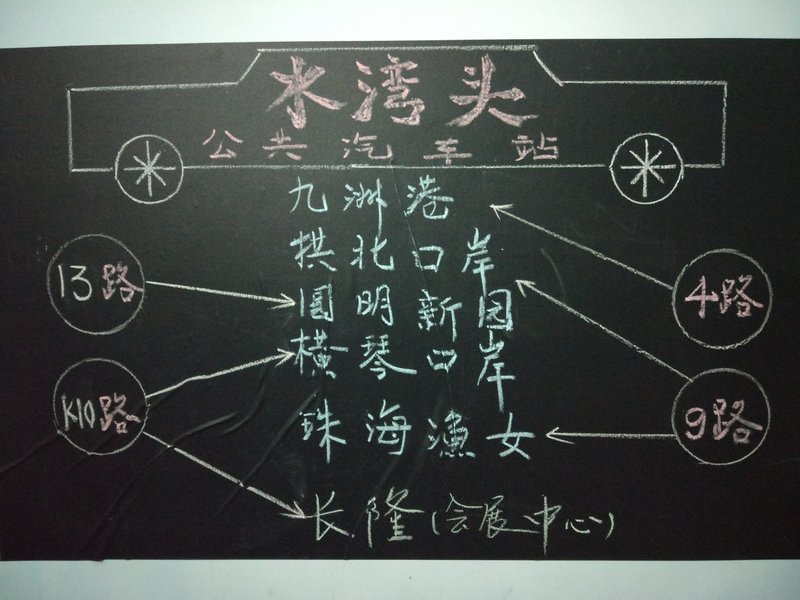 水湾头
公共汽车站
九洲港
拱北口岸
13路
圆明新园
4路
横琴口岸
K10路
珠海渔女
9路
长隆(会展中心)